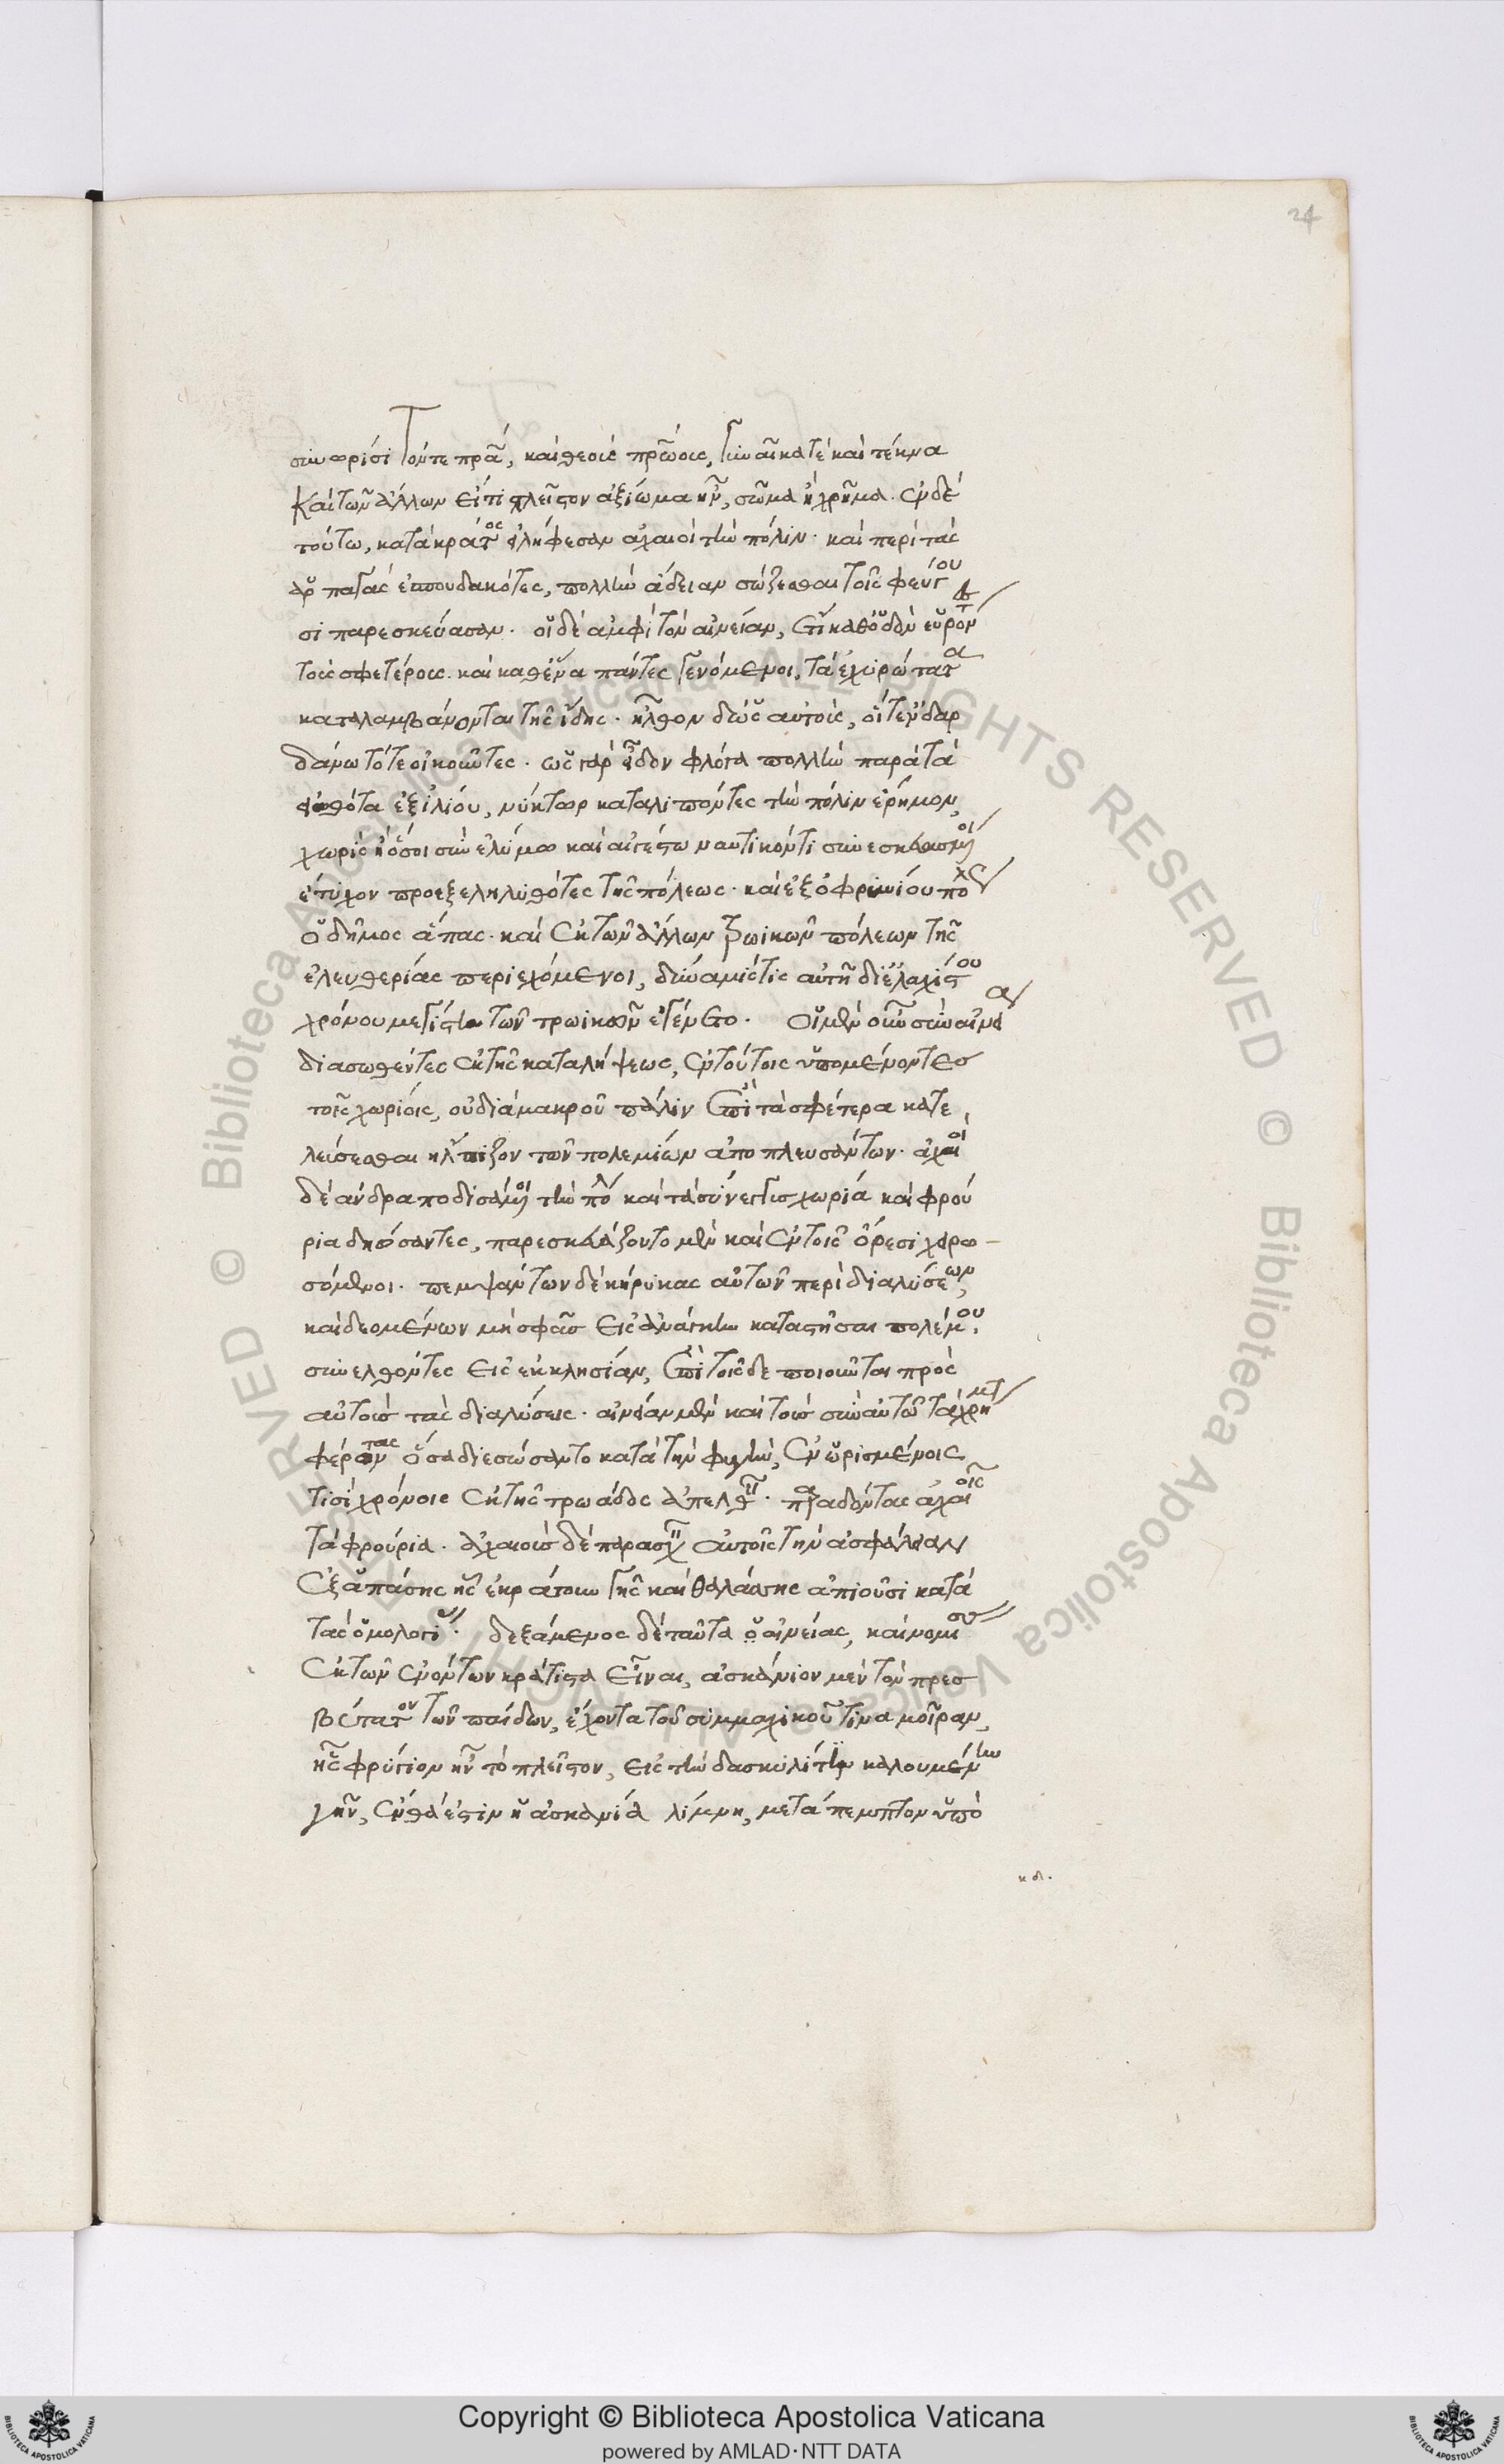 24
συνωρίσι τόν τε πρα, καὶ θεοὺς πρώους, γυναῖκά τε καὶ τέκνα
καὶ τῶν ἄλλων εἴ τι πλεῖστον ἀξίωμα ἦν, σῶμα ἢ χρῆμα. ἐν δὲ
τούτω, κατὰ κράτος εἰλήφεσαν ἀχαιοὶ τὴν πόλιν. καὶ περὶ τὰς
ἁρπαγὰς ἐσπουδακότες, πολλὴν ἄδειαν σώζεσθαι τοῖς φεύγου
σι παρεσκεύασαν. οἱ δὲ ἀμφὶ τὸν αἰνείαν, ἔτι καθ' ὁδὸν εὑρόντες
τοὺς σφετέρους. καὶ καθ' ἓν ἅπαντες γενόμενοι, τὰ ἐχυρώτατα
καταλαμβάνονται τῆς ἴδης. ἦλθον δ' ὡς αὐτοὺς, οἵ τε ἐν δαρ
δάνω τότε οἰκοῦντες. ὡς γὰρ εἶδον φλόγα πολλὴν παρὰ τὰ
εἰωθότα ἐξ ἰλίου, νύκτωρ καταλιπόντες τὴν πόλιν ἐρήμον,
χωρὶς ἢ ὅσοι σὺν ἐλύμω καὶ αἰγέστω ναυτικόν τι συνεσκευασμένοι
ἔτυχον προεξεληλυθότες τῆς πόλεως. καὶ ἐξ ὀφρυνίου πόλεως
ὁ δῆμος ἅπας. καὶ ἐκ τῶν ἄλλων τρωικῶν πόλεων τῆς
ἐλευθερίας περιεχόμενοι, δύναμίς τις αὐτὴ δι' ἐλαχίστου
χρόνου μεγίστη τῶν τρωικῶν ἐγένετο. οἱ μὲν οὖν σὺν αἰνεία
διασωθέντες ἐκ τῆς καταλήψεως, ἐν τούτοις ὑπομένοντες
τοῖς χωρίοις, οὐ διὰ μακροῦ πάλιν ἐπὶ τὰ σφέτερα κατε
λεύσεσθαι ἤλπιζον τῶν πολεμίων ἀποπλευσάντων. ἀχαιοὶ
δὲ ἀνδραποδισάμενοι τὴν πόλιν καὶ τὰ σύνεγγυς χωρία καὶ φρού
ρια δηώσαντες, παρεσκευάζοντο μὲν καὶ ἐν τοῖς ὄρεσι χειρω
σόμενοι. πεμψάντων δὲ κήρυκας αὐτῶν περὶ διαλύσεων,
καὶ δεομένων μὴ σφᾶς εἰς ἀνάγκην καταστῆσαι πολέμου.
συνελθόντες εἰς ἐκκλησίαν, ἐπὶ τοῖσδε ποιοῦνται πρὸς
αὐτοὺς τὰς διαλύσεις. αἰνείαν μὲν καὶ τοὺς σὺν αὐτῶ τὰ χρήματα
φέροντας ὅσα διεσώσαντο κατὰ τὴν φυγὴν, ἐν ὡρισμένοις
τισὶ χρόνοις ἐκ τῆς τρωάδος ἀπελθεῖν. παραδόντας ἀχαιοῖς
τὰ φρούρια. ἀχαιοὺς δὲ παρασχεῖν αὐτοῖς τὴν ἀσφάλειαν
ἐξ ἁπάσης ἧς ἐκράτουν γῆς καὶ θαλάσσης ἀπιοῦσι κατὰ
τὰς ὁμολογίας. δεξάμενος δὲ ταῦτα ὁ αἰνείας, καὶ νομίσας
ἐκ τῶν ἐνόντων κράτιστα εἶναι, ἀσκάνιον μὲν τὸν πρεσ
βύτατον τῶν παίδων, ἔχοντα τοῦ συμμαχικοῦ τινα μοῖραν,
ἧς φρύγιον ἦν τὸ πλεῖστον, εἰς τὴν δασκυλῖτιν καλουμένην
γῆν, ἔνθα ἐστὶν ἡ ἀσκανία λίμνη, μετάπεμπτον ὑπὸ
κδ.